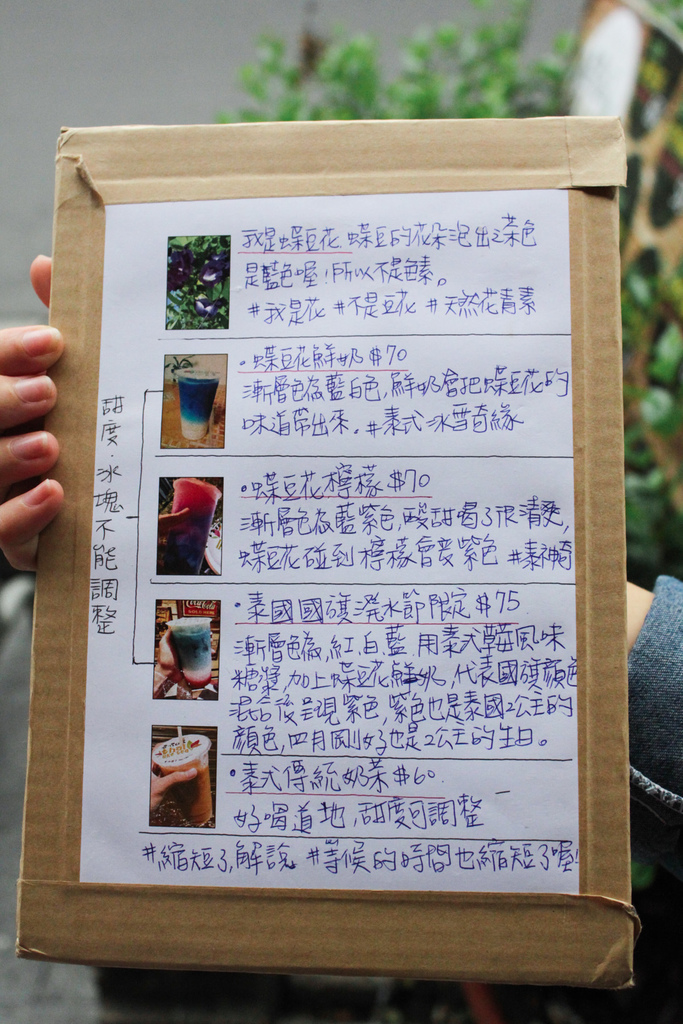 我是蝶豆花.蝶豆的花朵泡出之茶色
是藍色喔!所以不是色素。
#我是花 #不是豆花 #天然花青素
·蝶豆花鮮奶$70
漸層色為藍白色,鮮奶會把蝶豆花的
味道帶出來。#泰式冰雪奇緣
·蝶豆花檸檬$70
漸層色為藍紫色,酸甜喝了很清爽,
蝶豆花碰到檸檬會變紫色 #泰神奇
·泰國國旗潑水節限定$75
漸層色為,紅.白.藍.用泰式草莓風味
糖漿,加上蝶豆花鮮奶,代表國旗顏色
混合後呈現紫色,紫色也是泰國2公主的
顏色,四月剛好也是2公主的生日。
·泰式傳統奶茶$60.
好喝道地,甜度可調整
#縮短了解說 #等候的時間也縮短了喔!
甜度·冰塊不能調整
Coca-Cola